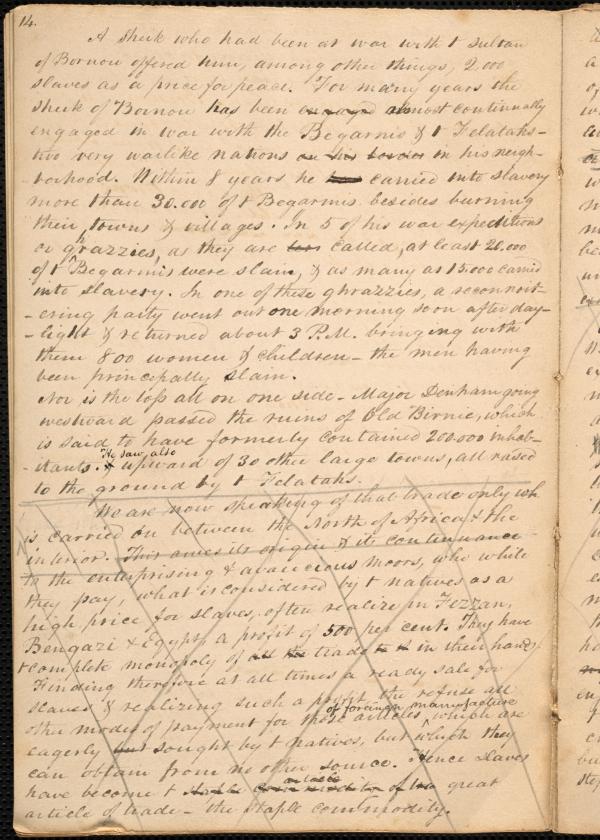 14.
A Sheik who had been at war with t Sultan
of Bornou offered him, among other things, 2,000
slaves as a price for peace. For many years the
sheik of Bornou has been engaged almost continually
engaged in war with the Begarmis & t Felatahs-
two very warlike nations on his border in his neigh-
-borhood. Within 8 years he carried into slavery
more than 30.000 of t Begarmis besides burning
their towns & villages. In 5 of his war expeditions
or ghrazzies, as they are called, at least 20.000
of t Begarmis were slain, & as many as 15.000 carried
into slavery. In one of these ghrazzies, a reconnoit-
-ering party went out one morning soon after day-
-light & returned about 3 P.M. bringing with
them 800 women & children- the men having
been principally slain.
Nor is the loss all on one side- Major Denham going
westward passed the ruins of Old Birnie, which
is said to have formerly contained 200.000 inhab-
He saw also
-itants. & upward of 30 other large towns, all razed
to the ground by t Felatahs.
We are now speaking of that trade only wh
is carried on between the North of Africa & the
interior. This owes its origin & its continuance
to the enterprising & avaricious Moors, who while
they pay, what is considered by t natives as a
high price for slaves, often realize in Fezzan,
Bengazi & Egypt a profit of 500 per cent. They have
t complete monopoly of all the trade in their hands
Finding therefore at all times a ready sale for
slaves & realizing such a profit, the refuse all
of foreign manufacture
other modes of payment for these articles, which are
eagerly sought by t natives, but which they
can obtain from no other source. Hence slaves
article
have become t staple commodity of tra great
article of trade- the staple commodity.